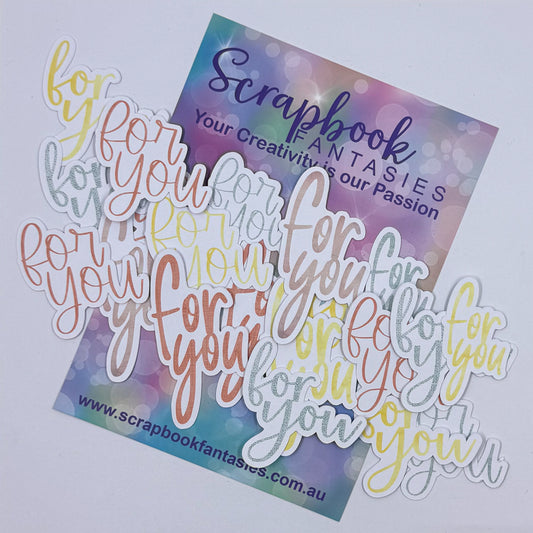 Scrapbook
FANTASIES
Your Creativity is our Passion
for
you
for
you
for
you
for
you
for
you
for
you
for
you
for
you
for
you
for
you
for
you
for
you
for
you
for
you
www.scrapbookfantasies.com.au